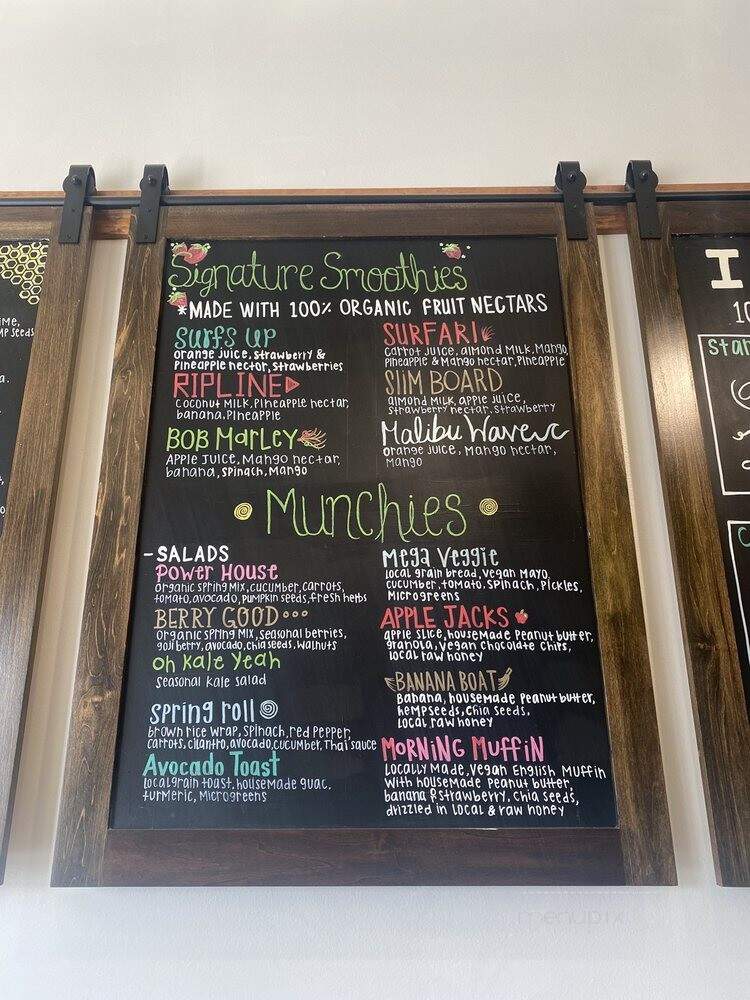 Signature Smoothies
*MADE WITH 100% ORGANIC FRUIT NECTARS
Surfs Up
orange juice, strawberry &
Pineapple nectar, strawberries
RIPLINE
Coconut Milk, Pineapple nectar,
banana, Pineapple
BOB Marley
Apple Juice, Mango nectar,
banana, spinach, Mango
SURFARI
Carrot juice, almond Milk, Mango,
Pineapple & Mango nectar, Pineapple
Slim BOARD
almond Milk, apple juice,
strawberry nectar, strawberry
Malibu Waves
orange juice, Mango nectar,
Mango
Munchies
-SALADS
Power House
organic spring mix, cucumber, carrots,
tomato, avocado, pumpkin seeds, fresh herbs
BERRY GOOD...
organic spring mix, seasonal berries,
goji berry, avocado, chia seeds, walnuts
oh kale yeah
seasonal kale salad
spring roll
brown rice wrap, spinach, red pepper,
carrots, cilantro, avocado, cucumber, Thai sauce
Avocado Toast
local grain toast, housemade guac,
turmeric, Microgreens
Mega Veggie
local grain bread, vegan mayo,
cucumber, tomato, spinach, pickles,
Microgreens
APPLE JACKS
apple slice, housemade peanut butter,
granola, vegan chocolate chips,
local raw honey
BANANA BOAT
Banana, housemade peanut butter,
hempseeds, chia seeds,
local raw honey
MORNING MUFFIN
Locally Made, vegan English Muffin
with housemade peanut butter,
banana & strawberry, chia seeds,
drizzled in local & raw honey